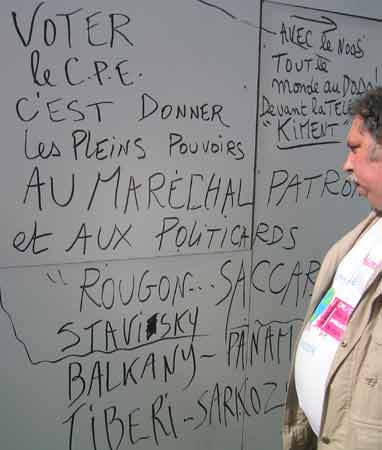 VOTER
le C.P.E.
C'EST DONNER
les PLEINS POUVOIRS
AU MARÉCHAL PATRON
et AUX POLITICARDS
"ROUGON... SACCAR
STAVISKY
BALKANY - PANAM
TIBERI - SARKOZ
AVEC le
TOUT le
monde au DODO!
Devant la TELE
"KIMENT